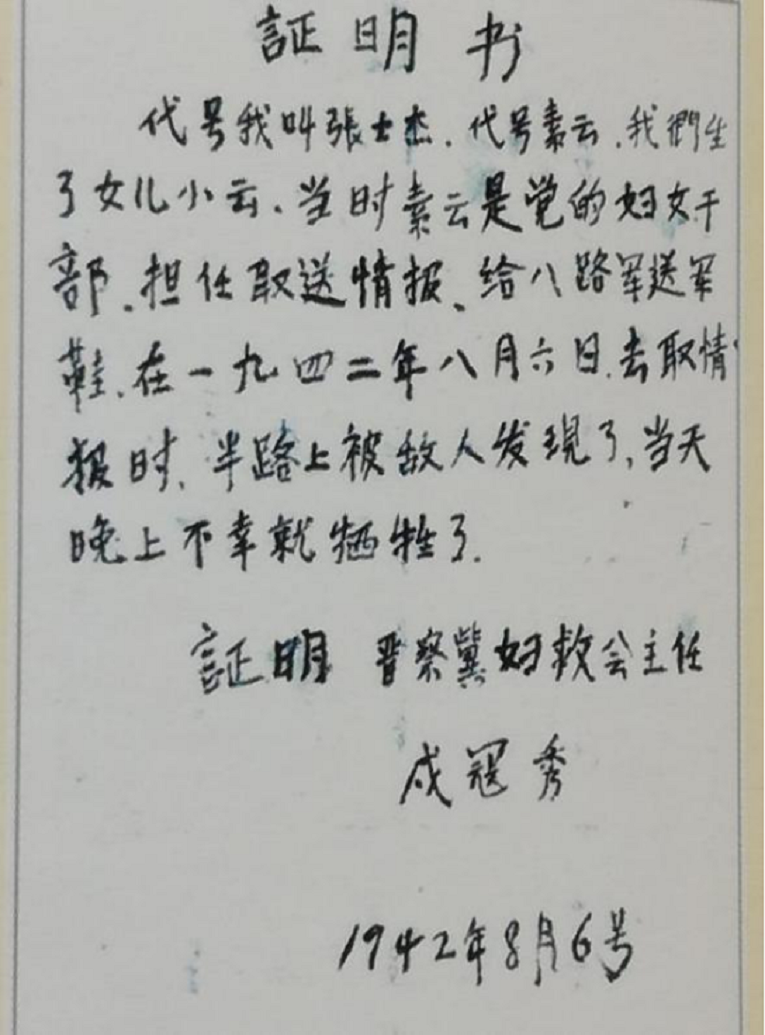 証明书
代号我叫張士杰.代号素云.我們生
了女儿小云.当时素云是党的妇女干
部.担任取送情报、给八路军送军
鞋.在一九四二年八月六日.去取情
报时.半路上被敌人发现了,当天
晚上不幸就牺牲了.
証明 晋察冀妇救会主任
成冠秀
1942年8月6号